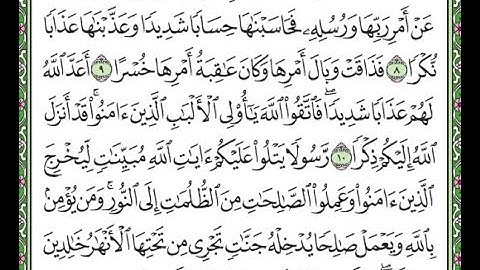 عَنْ أَمْرِ رَبِّهَا وَرُسُلِهِۦ فَحَاسَبْنَٰهَا حِسَابًا شَدِيدًا وَعَذَّبْنَٰهَا عَذَابًا
نُّكْرًا ٨ فَذَاقَتْ وَبَالَ أَمْرِهَا وَكَانَ عَٰقِبَةُ أَمْرِهَا خُسْرًا ٩ أَعَدَّ ٱللَّهُ
لَهُمْ عَذَابًا شَدِيدًا ۖ فَٱتَّقُوا۟ ٱللَّهَ يَٰٓأُو۟لِى ٱلْأَلْبَٰبِ ٱلَّذِينَ ءَامَنُوا۟ ۚ قَدْ أَنزَلَ
ٱللَّهُ إِلَيْكُمْ ذِكْرًا ١٠ رَّسُولًا يَتْلُوا۟ عَلَيْكُمْ ءَايَٰتِ ٱللَّهِ مُبَيِّنَٰتٍ لِّيُخْرِجَ
ٱلَّذِينَ ءَامَنُوا۟ وَعَمِلُوا۟ ٱلصَّٰلِحَٰتِ مِنَ ٱلظُّلُمَٰتِ إِلَى ٱلنُّورِ ۚ وَمَن يُؤْمِنۢ
بِٱللَّهِ وَيَعْمَلْ صَٰلِحًا يُدْخِلْهُ جَنَّٰتٍ تَجْرِى مِن تَحْتِهَا ٱلْأَنْهَٰرُ خَٰلِدِينَ